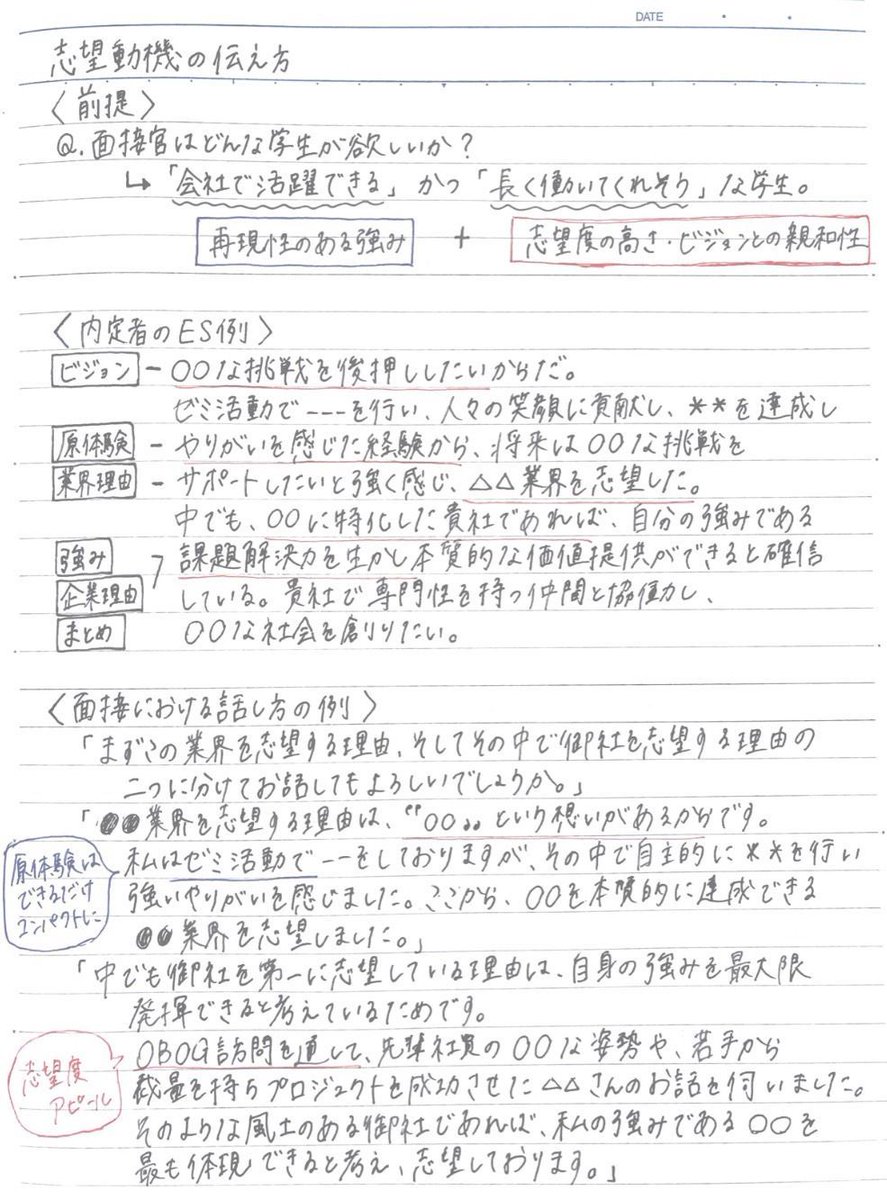 DATE
志望動機の伝え方
〈前提〉
Q.面接官はどんな学生が欲しいか？
↳「会社で活躍できる」かつ「長く働いてくれそう」な学生。
再現性のある強み + 志望度の高さ・ビジョンとの親和性
〈内定者のES例〉
ビジョン - 〇〇な挑戦を後押ししたいからだ。
ゼミ活動で---を行い、人々の笑顔に貢献し、**を達成し
原体験 - やりがいを感じた経験から、将来は〇〇な挑戦を
業界理由 - サポートしたいと強く感じ、△△業界を志望した。
中でも、〇〇に特化した貴社であれば、自分の強みである
強み 課題解決力を生かし本質的な価値提供ができると確信
企業理由 している。貴社で専門性を持つ仲間と協働し、
まとめ 〇〇な社会を創りたい。
〈面接における話し方の例〉
「まずこの業界を志望する理由、そしてその中で御社を志望する理由の
二つに分けてお話してもよろしいでしょうか。」
「●●業界を志望する理由は、"〇〇"という想いがあるからです。
私はゼミ活動で--をしておりますが、その中で自主的に**を行い
強いやりがいを感じました。ここから、〇〇を本質的に達成できる
●●業界を志望しました。」
原体験は
できるだけ
コンパクトに
「中でも御社を第一に志望している理由は、自身の強みを最大限
発揮できると考えているためです。
OBOG訪問を通して、先輩社員の〇〇な姿勢や、若手から
裁量を持ちプロジェクトを成功させた△△さんのお話を伺いました。
そのような風土のある御社であれば、私の強みである〇〇を
最も体現できると考え、志望しております。」
志望度
アピール